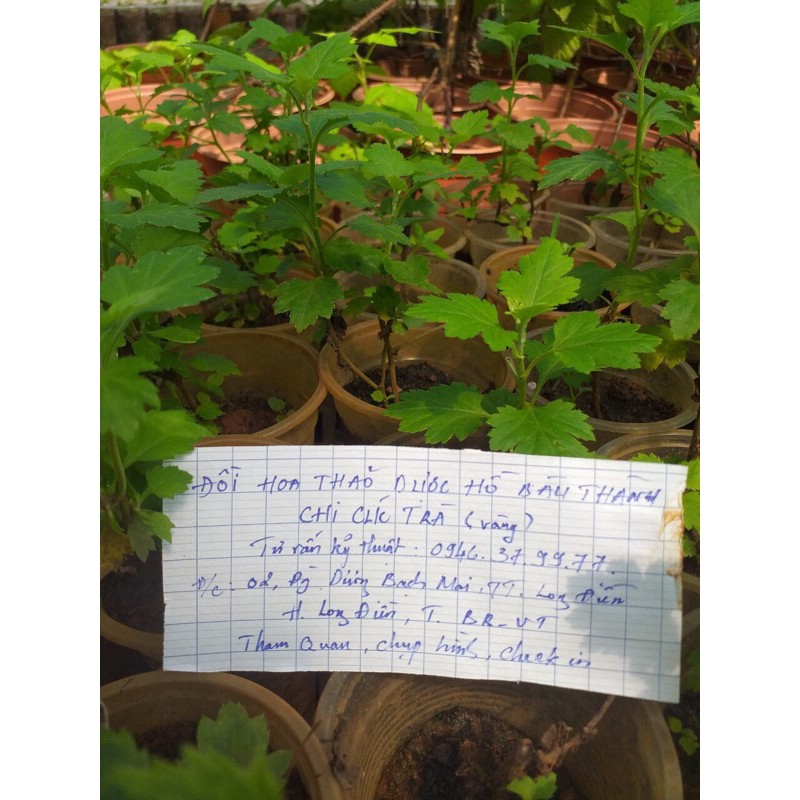 ĐỒI HOA THẢO DƯỢC HỒ BÀU THÀNH
CHI CÚC TRÀ (vàng)
Tư vấn kỹ thuật: 0946.37.99.77.
Đ/c: 02, Dương Bạch Mai, TT. Long Điền
H. Long Điền, T. BR-VT
Tham Quan, chụp hình, check in